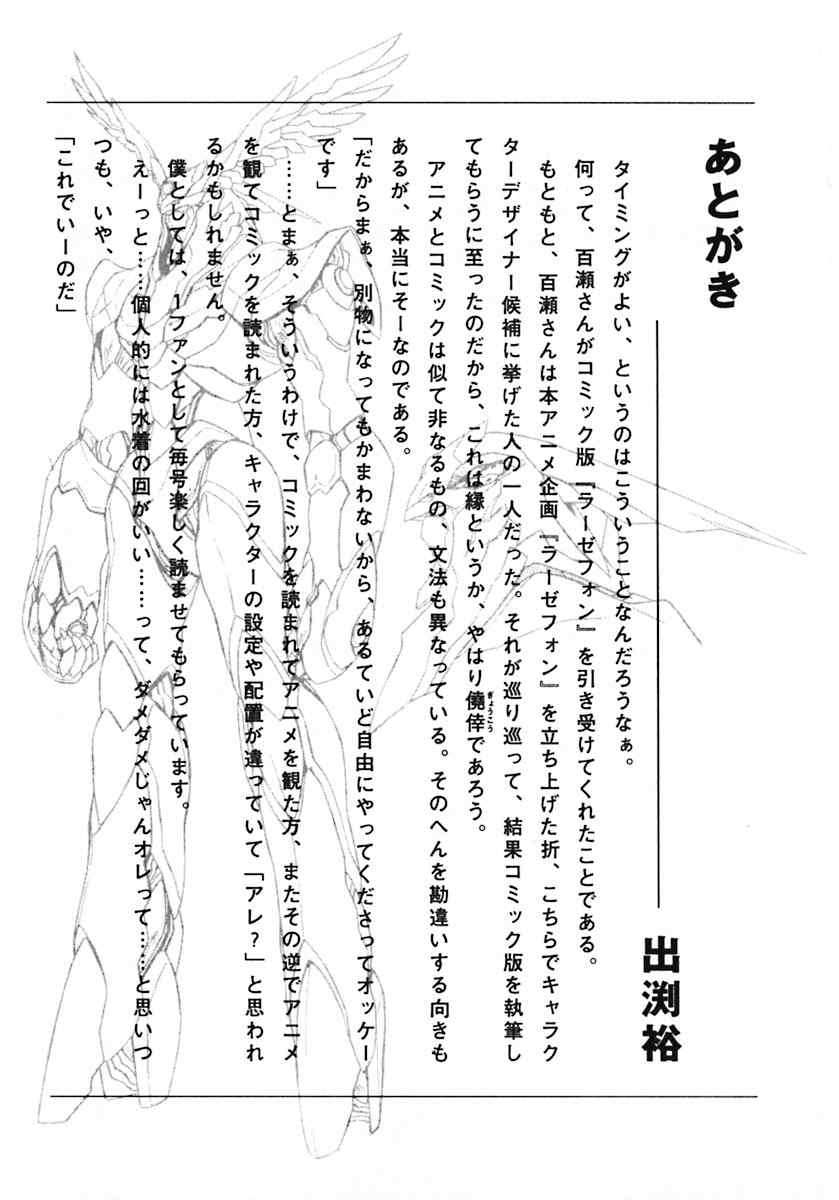 あとがき
出渕裕
タイミングがよい、というのはこういうことなんだろうなぁ。
何って、百瀬さんがコミック版『ラーゼフォン』を引き受けてくれたことである。
もともと、百瀬さんは本アニメ企画『ラーゼフォン』を立ち上げた折、こちらでキャラク
ターデザイナー候補に挙げた人の一人だった。それが巡り巡って、結果コミック版を執筆し
てもらうに至ったのだから、これは縁というか、やはり僥倖であろう。
ぎょうこう
アニメとコミックは似て非なるもの、文法も異なっている。そのへんを勘違いする向きも
あるが、本当にそーなのである。
「だからまぁ、別物になってもかまわないから、あるていど自由にやってくださってオッケー
です」
……とまぁ、そういうわけで、コミックを読まれてアニメを観た方、またその逆でアニメ
を観てコミックを読まれた方、キャラクターの設定や配置が違っていて「アレ?」と思われ
るかもしれません。
僕としては、1ファンとして毎号楽しく読ませてもらっています。
えーっと……個人的には水着の回がいい……って、ダメダメじゃんオレって……と思いつ
つも、いや、
「これでいーのだ」